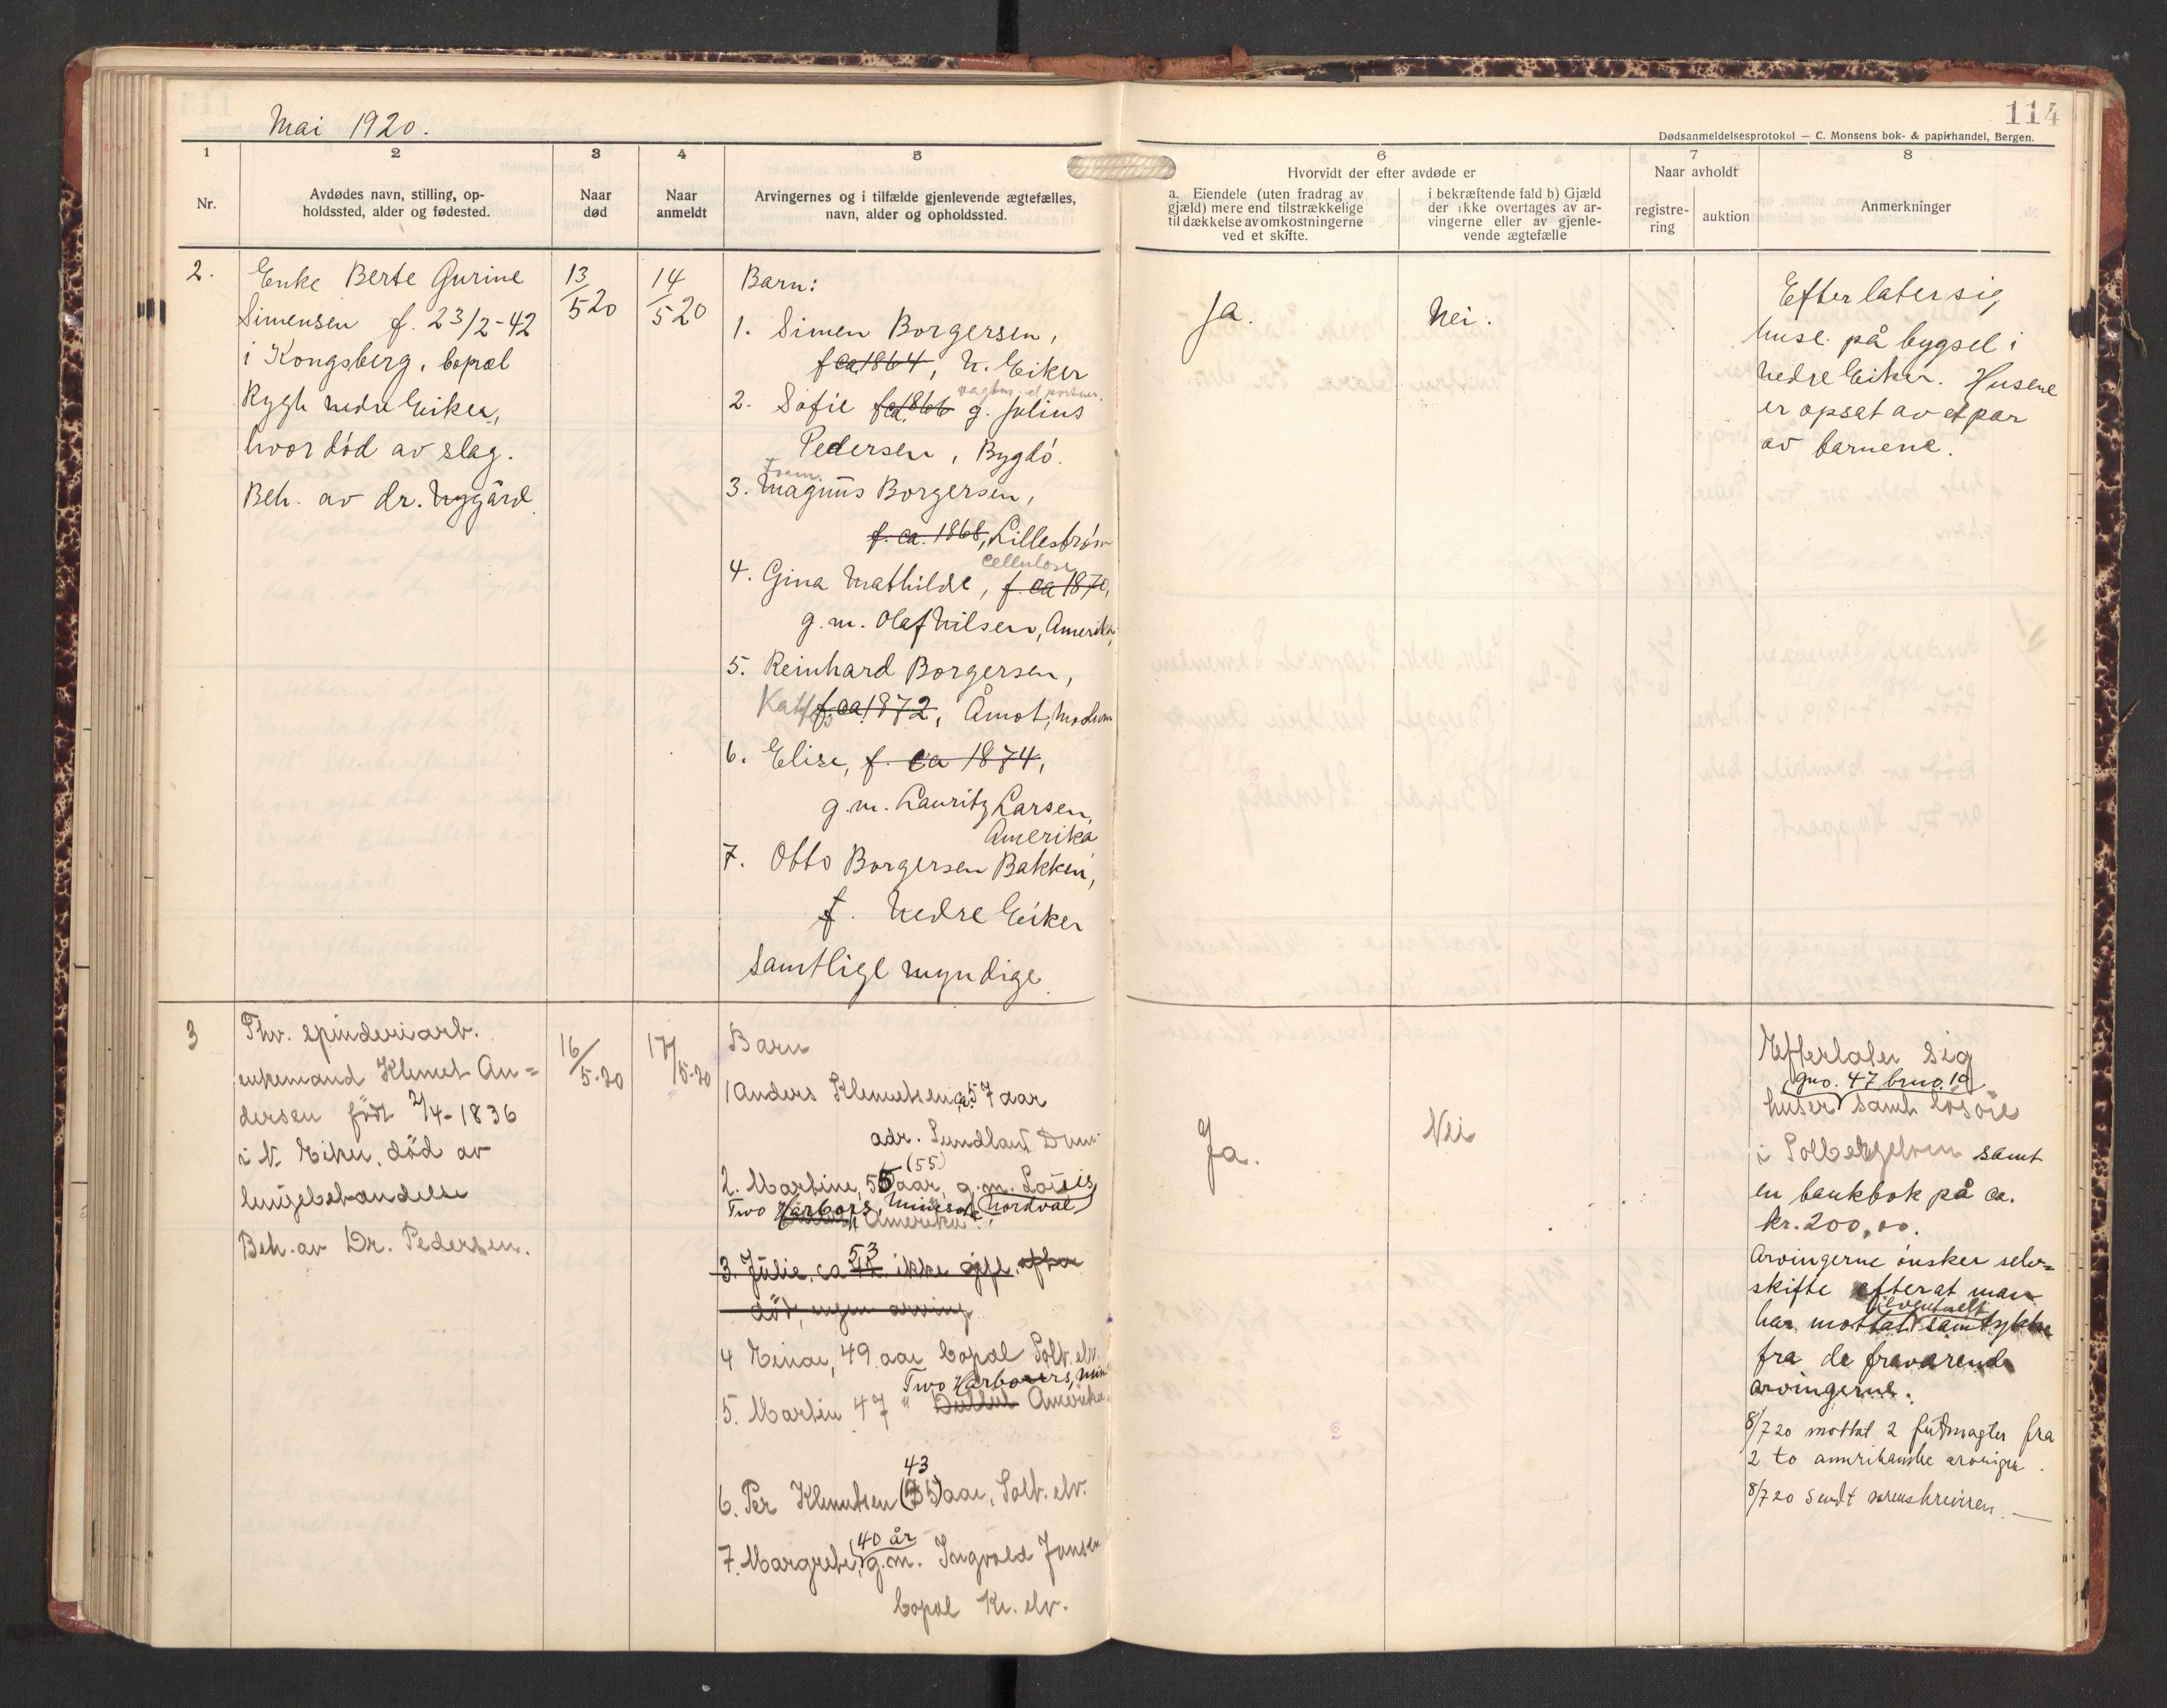 Mai 1920.
114
Dødsanmeldelsesprotokol — C. Monsens bok- & papirhandel, Bergen.
1
2
3
4
5
6
7
8
Nr.
Avdødes navn, stilling, op-
holdssted, alder og fødested.
Naar
død
Naar
anmeldt
Arvingernes og i tilfælde gjenlevende ægtefælles,
navn, alder og opholdssted.
Hvorvidt der efter avdøde er
a. Eiendele (uten fradrag av
gjæld) mere end tilstrækkelige
til dækkelse av omkostningerne
ved et skifte.
i bekræftende fald b) Gjæld
der ikke overtages av ar-
vingerne eller av gjenle-
vende ægtefælle
Naar avholdt
registre-
ring
auktion
Anmerkninger
2.
Enke Berte Gurine
Simensen f. 23/2-42
i Kongsberg, bopæl
Rygh nedre Eiker,
hvor död av slag.
Beh. av dr. Nygård.
13/5 20
14/5 20
Barn:
1. Simen Borgersen,
f ca 1864, N. Eiker
2. Sofie f ca 1866 g. Julius
Pedersen, Bygdö.
3. Magnus Borgersen,
f. ca. 1868, Lillestrøm
Cellulose
4. Gina Mathilde, f. ca 1870,
g. m. Olaf Nilsen, Amerika,
5. Reinhard Borgersen,
f ca 1872, Åmot, Modum
6. Elise, f. ca 1874,
g. m. Lauritz Larsen,
Amerika
7. Otto Borgersen Bakken,
f. Nedre Eiker
Samtlige myndige.
Ja.
Nei.
Efterlater sig
huse på bygsel i
Nedre Eiker. Husene
er opsat av et par
av barnena.
3
Fhv. spinderiarb.
enkemand Klemet An=
dersen født 2/4-1836
i N. Eiker, död av
lungebetændelse
Beh. av Dr. Pedersen.
16/5-20
17/5-20
Barn
1 Anders Klemetsen ca. 57 aar
adr. Sundland Drm.
(55)
2. Martine, 55 aar, g. m. Louis
Two Harbors, Minesota, (Nordval)
Amerika
3. Julie, ca 53 ikke gift
død, ingen arving
4 Einar, 49 aar bopæl Solb. elv.
Two Harborers, Min
5. Martin 47 " Amerika
43
6. Per Klemetsen aar, Solb. elv.
40 år
7. Margrete, g. m. Ingvald Jansen
bopæl Kr. elv.
Ja.
Nei
Efterlater sig
gno. 47 brno. 19
huser samt løsøre
i Solbergelven samt
en bankbok på ca.
kr. 200,00.
Arvingerne ønsker selv=
skifte efterat man
eventuelt
har mottat samtykke
fra de fraværende
arvingerne.
8/7 20 mottat 2 fuldmagter fra
2 to amerikanske arvinger.
8/7 20 Sendt sorenskriveren.